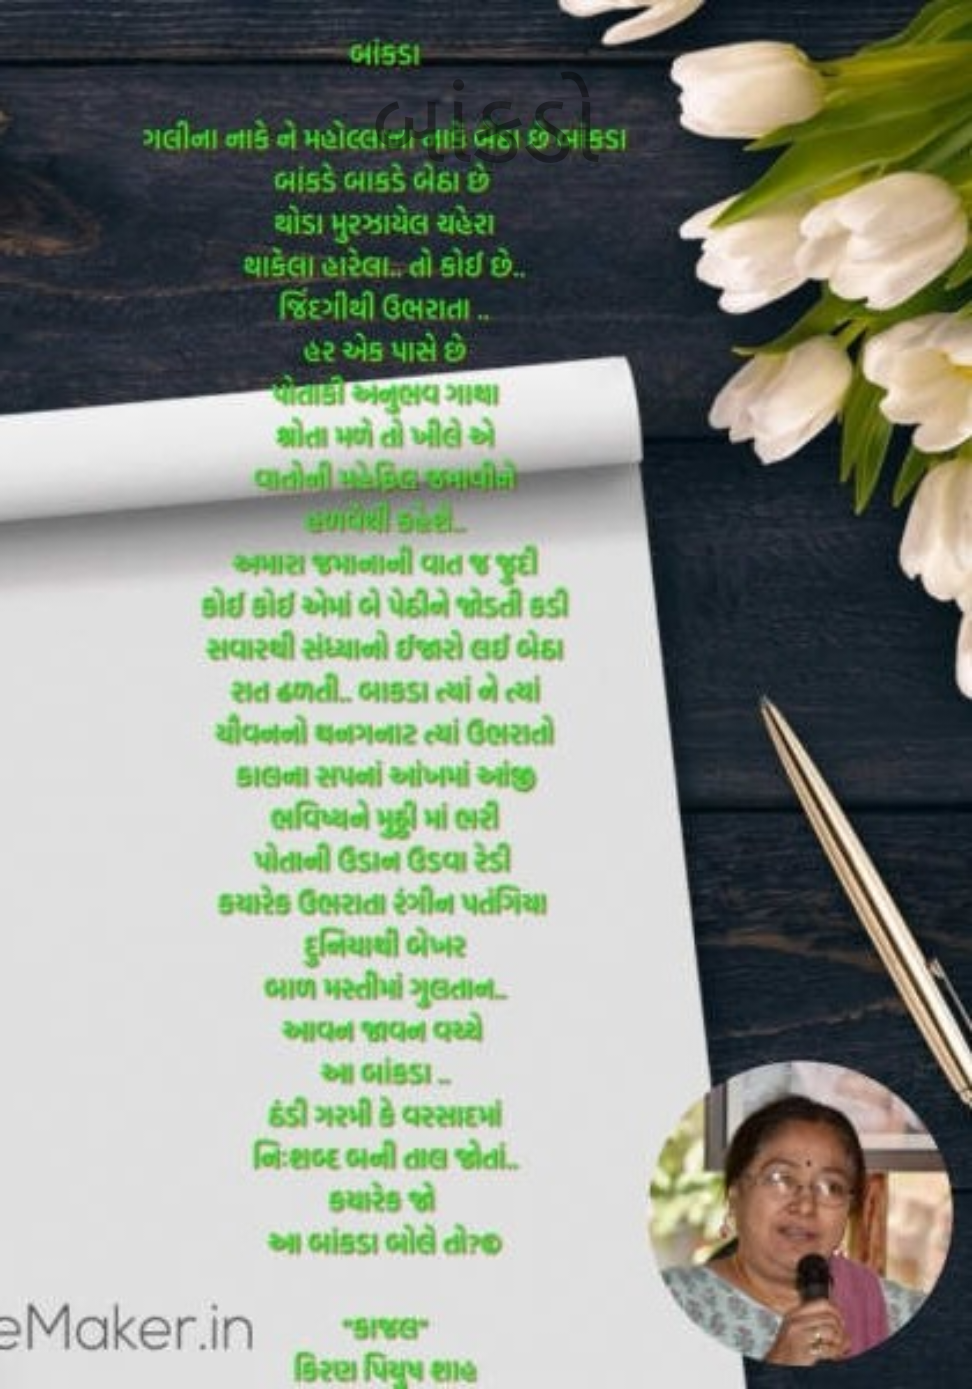 બાંકડા
બાંકડો
ગલીના નાકે ને મહોલ્લાના નાકે બેઠા છે બાંકડા
બાંકડે બાકડે બેઠા છે
થોડા મુરઝાયેલ ચહેરા
થાકેલા હારેલા.. તો કોઈ છે..
જિંદગીથી ઉભરાતા ..
હર એક પાસે છે
પોતાકી અનુભવ ગાથા
શ્રોતા મળે તો ખીલે એ
વાતોની મહેફિલ જમાવીને
હળવેથી કહેશે..
અમારા જમાનાની વાત જ જૂદી
કોઈ કોઈ એમાં બે પેઠીને જોડતી કડી
સવારથી સંધ્યાનો ઈજારો લઈ બેઠા
રાત ઢળતી.. બાકડા ત્યાં ને ત્યાં
યૌવનનો થનગનાટ ત્યાં ઉભરાતો
કાલના સપનાં આંખમાં આંજી
ભવિષ્યને મુઠ્ઠી માં ભરી
પોતાની ઉડાન ઉડવા રેડી
કયારેક ઉભરાતા રંગીન પતંગિયા
દુનિયાથી બેખર
બાળ મસ્તીમાં ગુલતાન..
આવન જાવન વચ્ચે
આ બાંકડા ..
ઠંડી ગરમી કે વરસાદમાં
નિઃશબ્દ બની તાલ જોતાં..
કયારેક જો
આ બાંકડા બોલે તો?©
eMaker.in
"કાજલ"
કિરણ પિયુષ શાહ